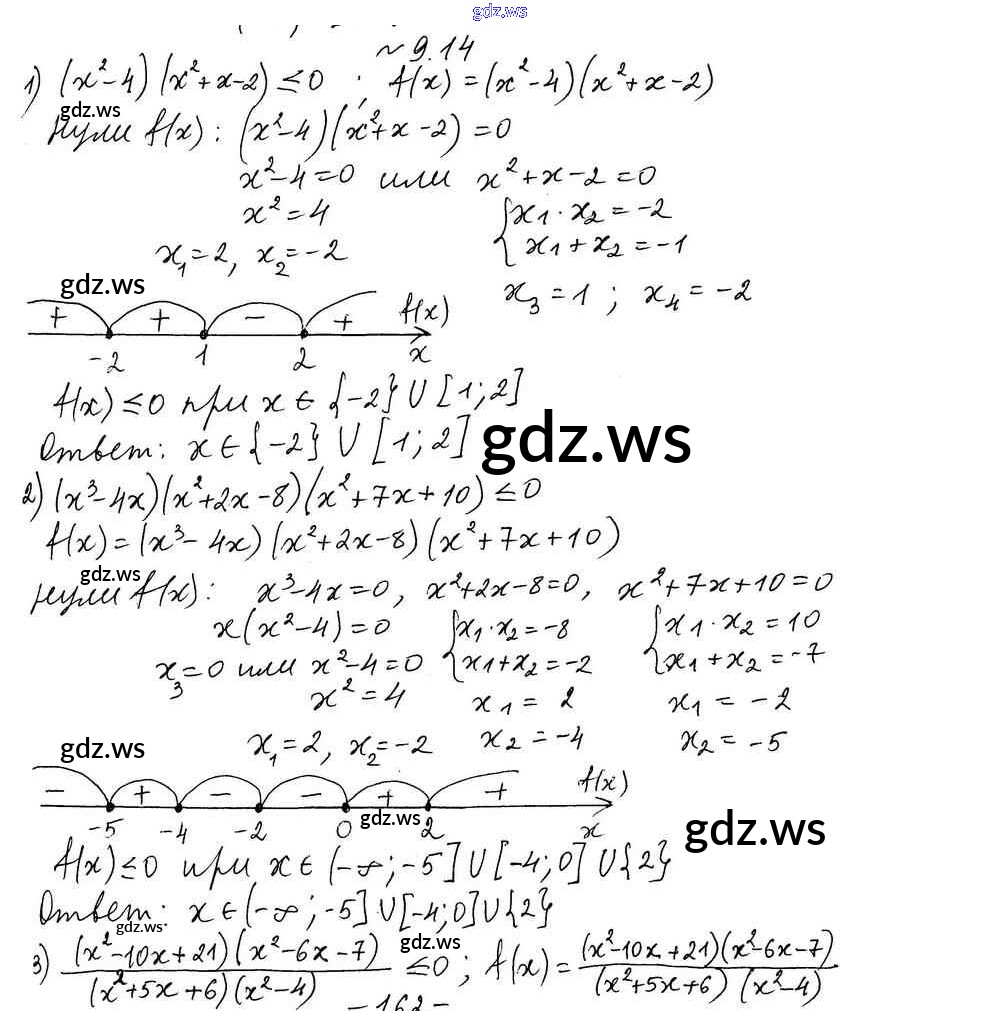 gdz.ws
№ 9.14
1) (x²-4)(x²+x-2)≤0 ; f(x)=(x²-4)(x²+x-2)
gdz.ws
Нули f(x): (x²-4)(x²+x-2)=0
x²-4=0 или x²+x-2=0
x²=4 {x₁·x₂=-2
x₁=2, x₂=-2 x₁+x₂=-1
gdz.ws
x₃=1; x₄=-2
+ + - + f(x)
-2 1 2 x
f(x)≤0 при x∈{-2}∪[1;2]
Ответ: x∈{-2}∪[1;2]
gdz.ws
2) (x³-4x)(x²+2x-8)(x²+7x+10)≤0
f(x)=(x³-4x)(x²+2x-8)(x²+7x+10)
gdz.ws
нули f(x): x³-4x=0, x²+2x-8=0, x²+7x+10=0
x(x²-4)=0 {x₁·x₂=-8 {x₁·x₂=10
x₃=0 или x²-4=0 x₁+x₂=-2 x₁+x₂=-7
x²=4 x₁=2 x₁=-2
x₁=2, x₂=-2 x₂=-4 x₂=-5
gdz.ws
- + - - + + f(x)
-5 -4 -2 0 2 x
gdz.ws
gdz.ws
f(x)≤0 при x∈(-∞;-5]∪[-4;0]∪{2}
Ответ: x∈(-∞;-5]∪[-4;0]∪{2}
gdz.ws
gdz.ws
3) (x²-10x+21)(x²-6x-7)/(x²+5x+6)(x²-4) ≤0; f(x)=(x²-10x+21)(x²-6x-7)/(x²+5x+6)(x²-4)
-162-